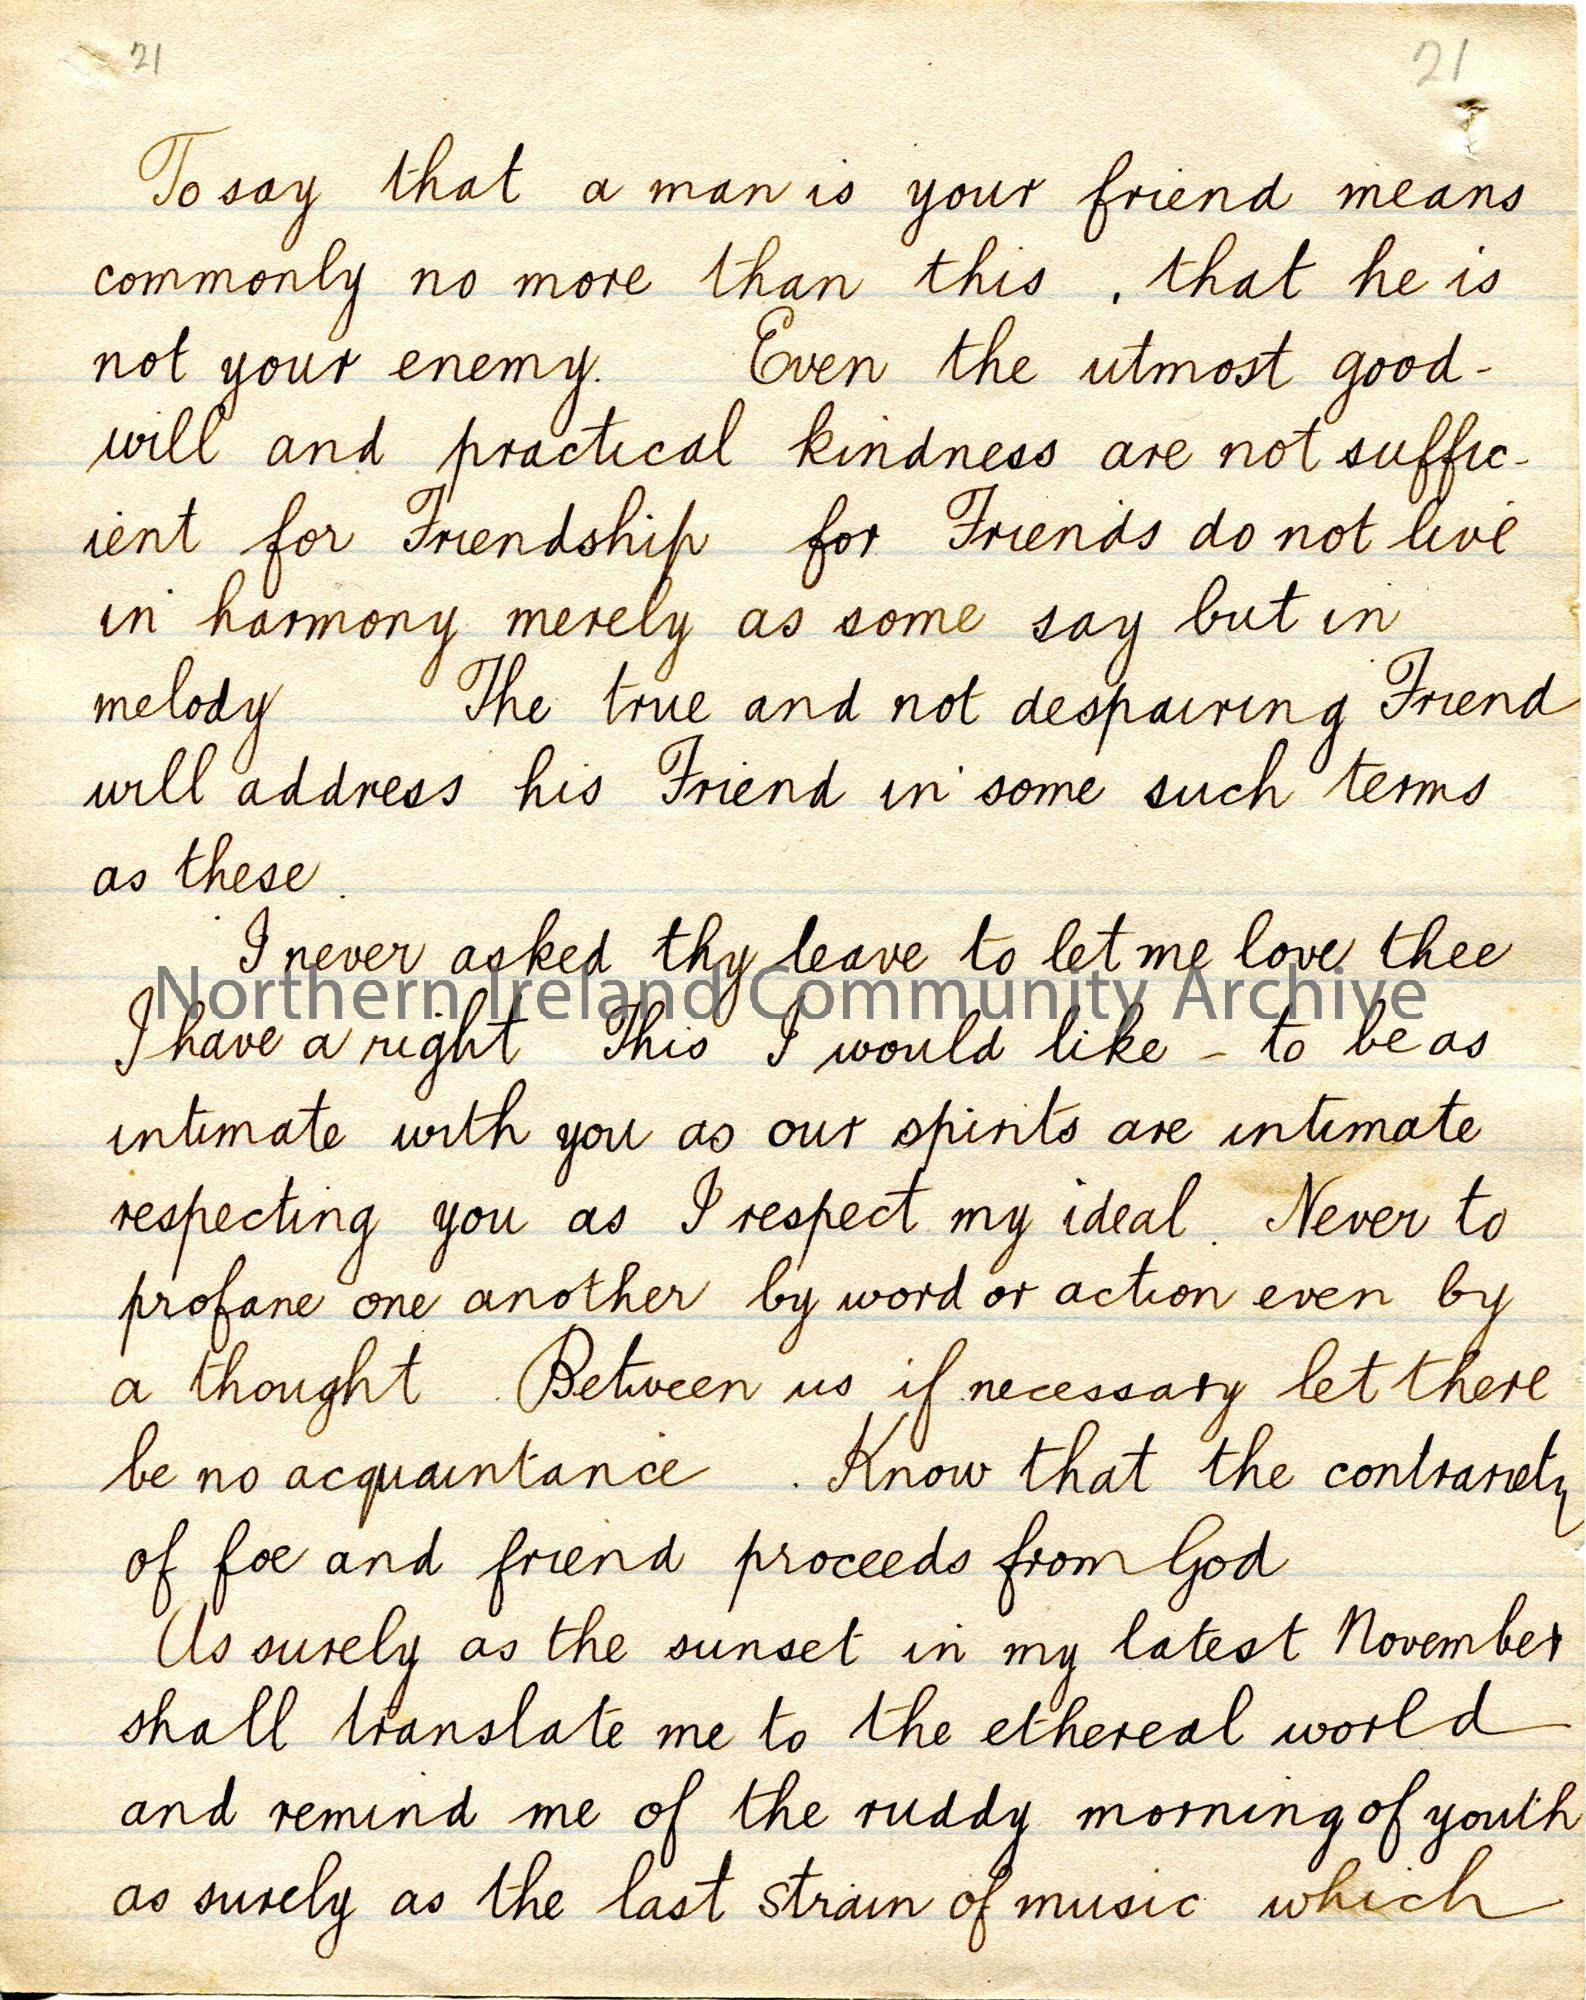 21 21
To say that a man is your friend means
commonly no more than this , that he is
not your enemy. Even the utmost good-
will and practical kindness are not suffic-
ient for Friendship for Friends do not live
in harmony merely as some say but in
melody The true and not despairing Friend
will address his Friend in some such terms
as these.
I never asked thy leave to let me love thee
Northern Ireland Community Archive
I have a right This I would like - to be as
intimate with you as our spirits are intimate
respecting you as I respect my ideal. Never to
profane one another by word or action even by
a thought. Between us if necessary let there
be no acquaintance . Know that the contrariety
of foe and friend proceeds from God
As surely as the sunset in my latest November
shall translate me to the ethereal world
and remind me of the ruddy morning of youth
as surely as the last strain of music which